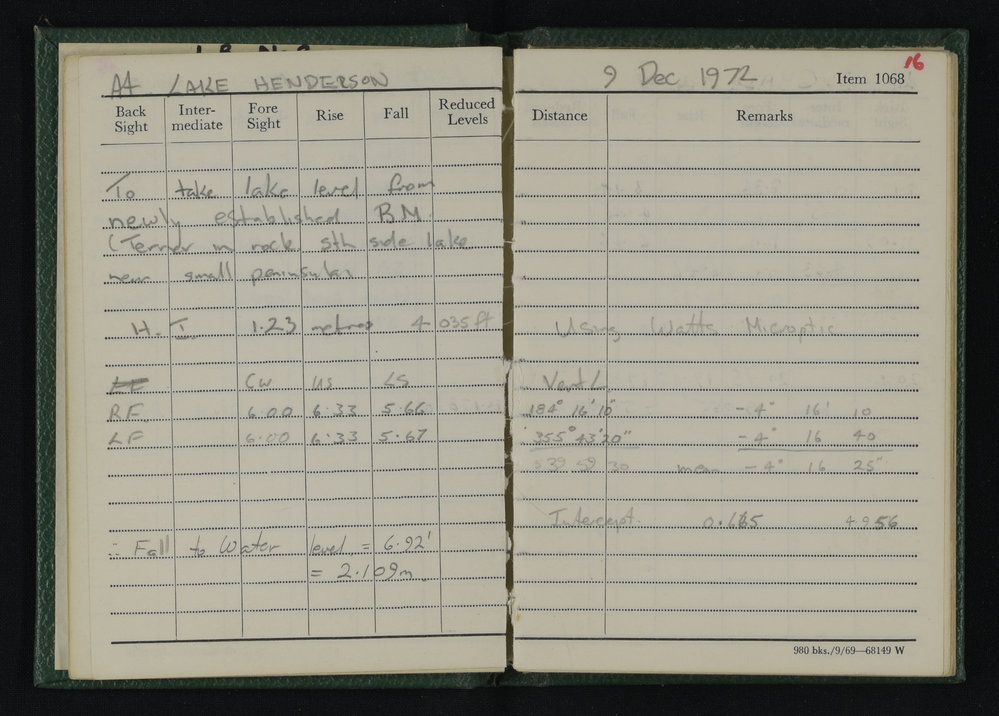 A4 LAKE HENDERSON
Back Sight Inter-mediate Fore Sight Rise Fall Reduced Levels
To take lake level from
newly established B.M.
(Terrier in rock sth side lake
near small peninsular
H. I. 1.23 metres 4.035 ft
CW US LS
RF. 6.00 6.33 5.66
LF 6.00 6.33 5.67
∴ Fall to Water level = 6.92'
= 2.109m.
16
9 Dec 1972 Item 1068
Distance Remarks
Using Watts Microptic
Vert L
184° 16' 10" - 4° 16' 10
355° 43' 20" - 4° 16 40
539 59 30 mean - 4° 16 25"
Intercept. 0.665 4.956
980 bks./9/69—68149 W